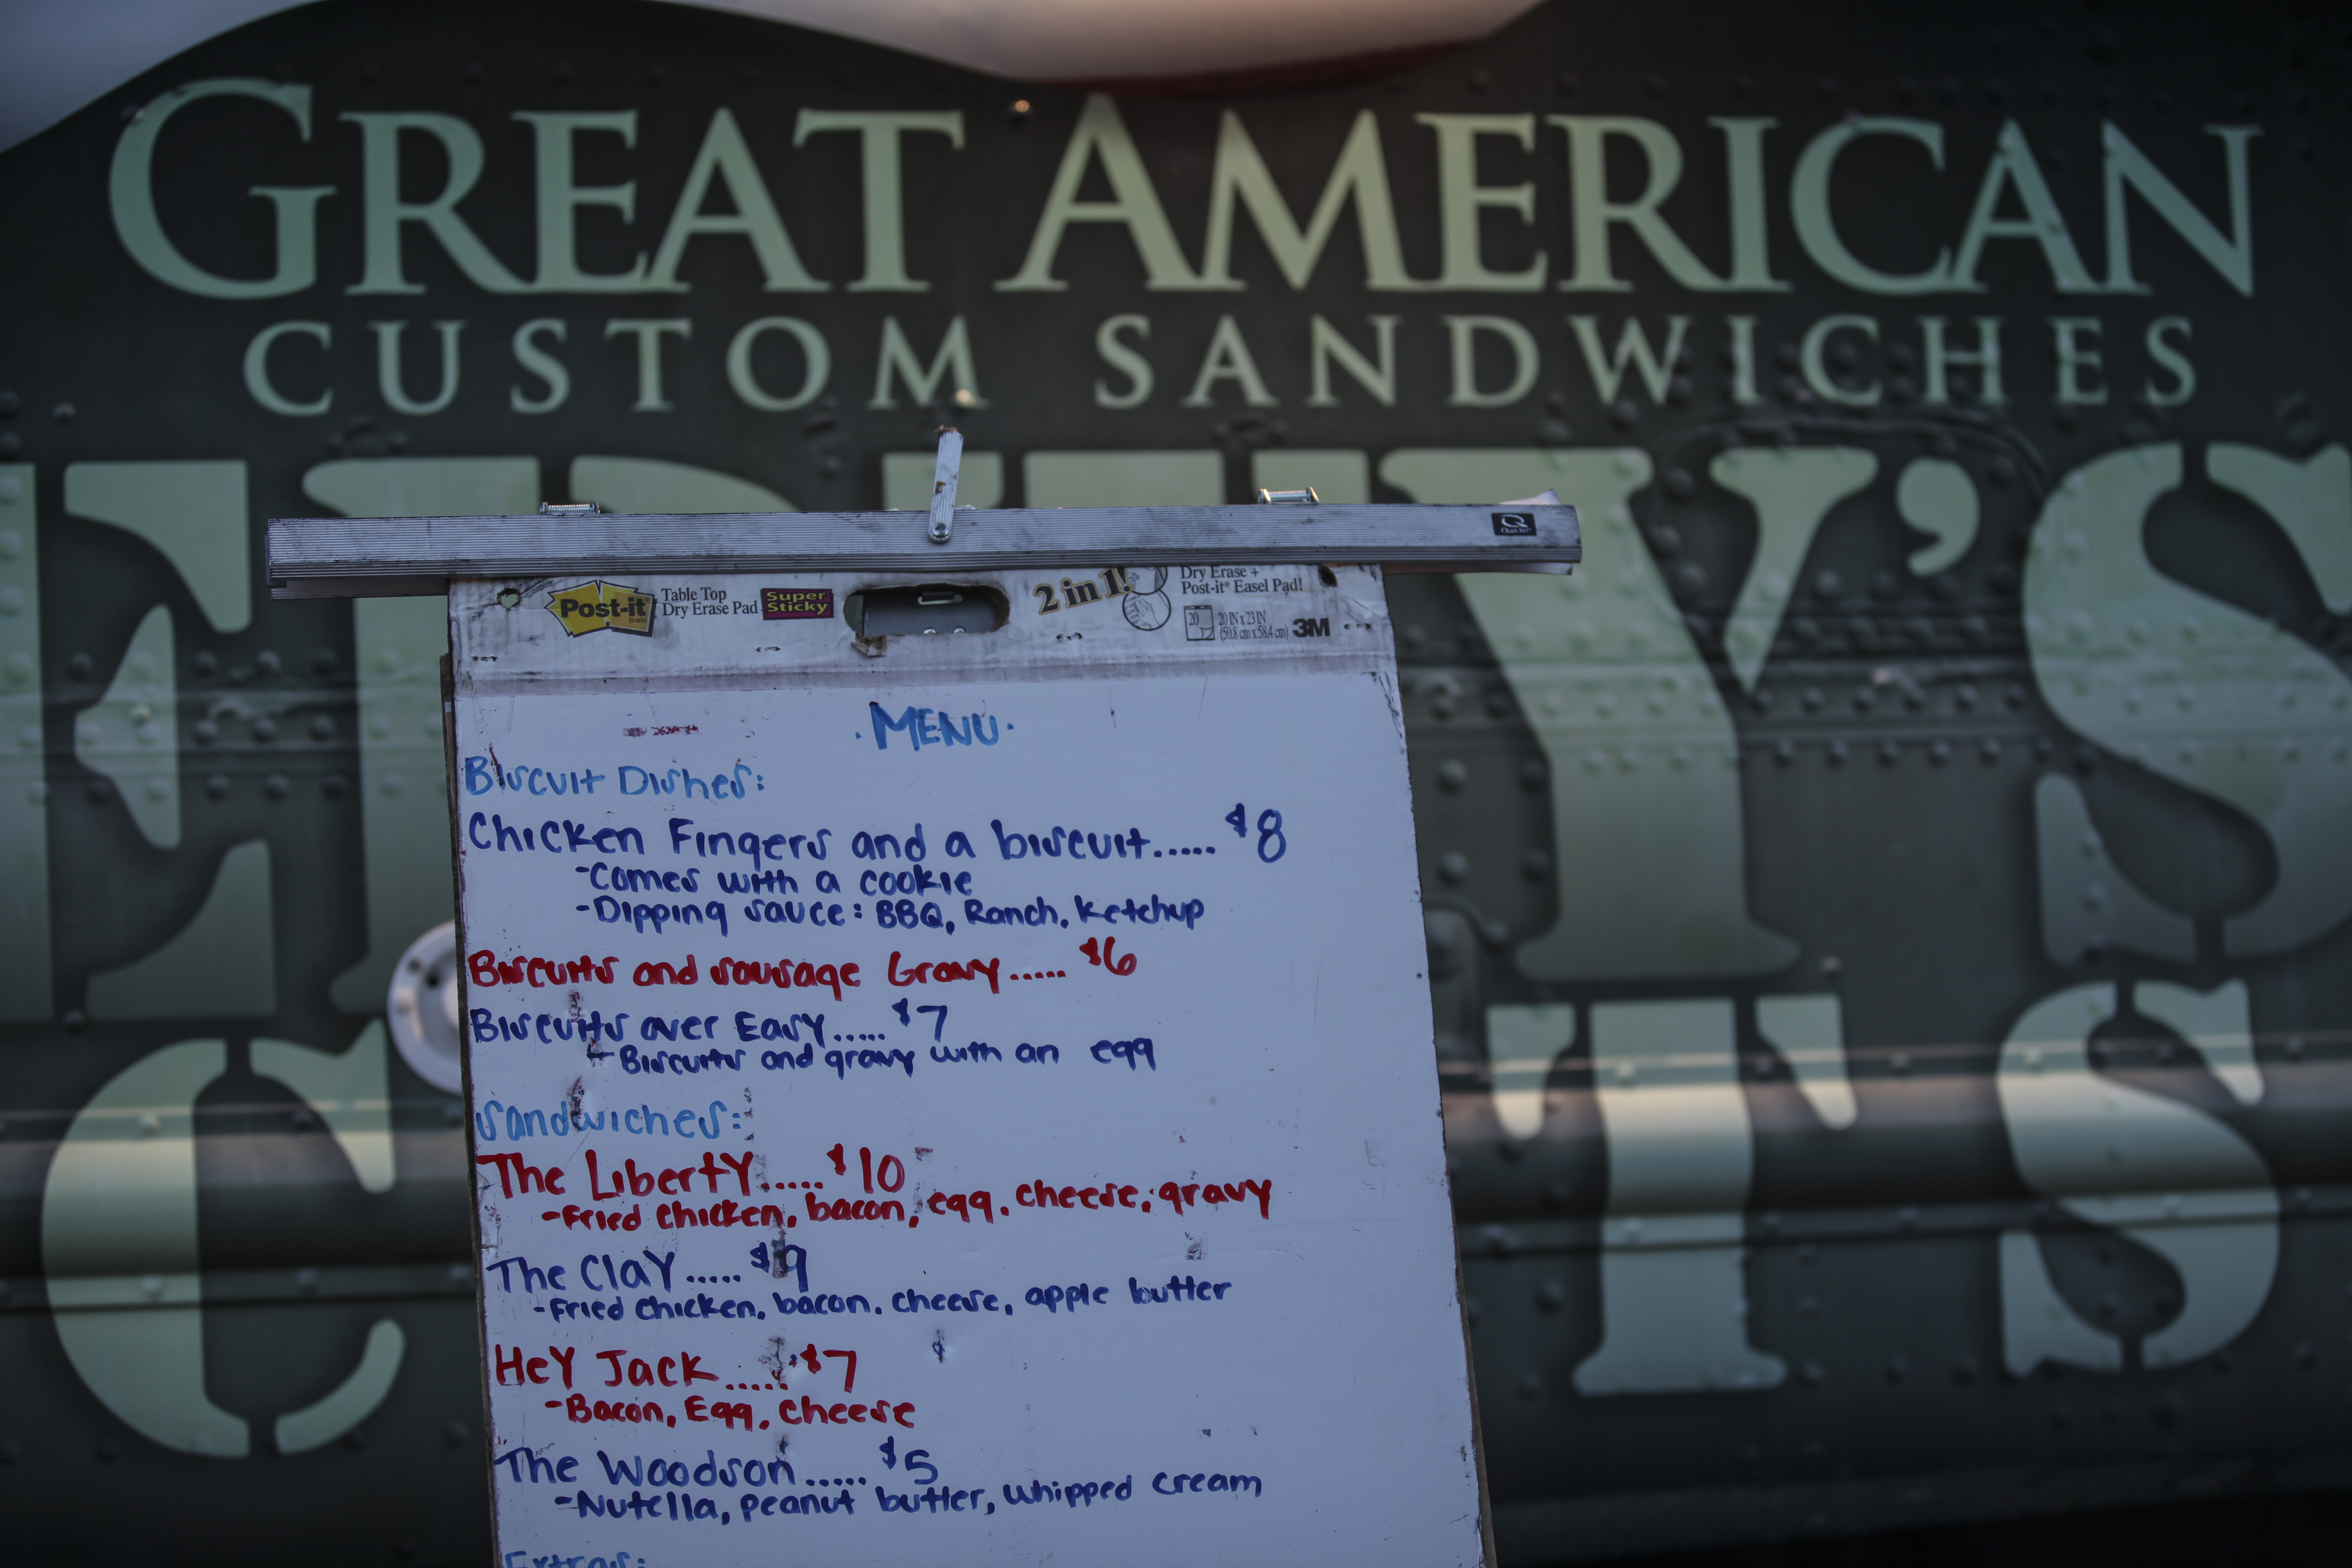 GREAT AMERICAN
CUSTOM SANDWICHES
Y'S
C T'S
Q
Quartet
Post-it
Table Top
Dry Erase Pad
Super
Sticky
2 in 1!
Dry Erase +
Post-it® Easel Pad!
20
20 IN x 23 IN
(50.8 cm x 58.4 cm)
3M
·MENU·
Biscuit Dishes:
Chicken Fingers and a biscuit..... $8
-Comes with a cookie
-Dipping sauce: BBQ, Ranch, Ketchup
Biscuits and sausage Gravy..... $6
Biscuits over Easy..... $7
-Biscuits and gravy with an egg
Sandwiches:
The Liberty..... $10
-Fried chicken, bacon, egg, cheese, gravy
The Clay..... $9
-Fried chicken, bacon, cheese, apple butter
Hey Jack..... $7
-Bacon, Egg, Cheese
The Woodson..... $5
-Nutella, peanut butter, whipped cream
Extras: